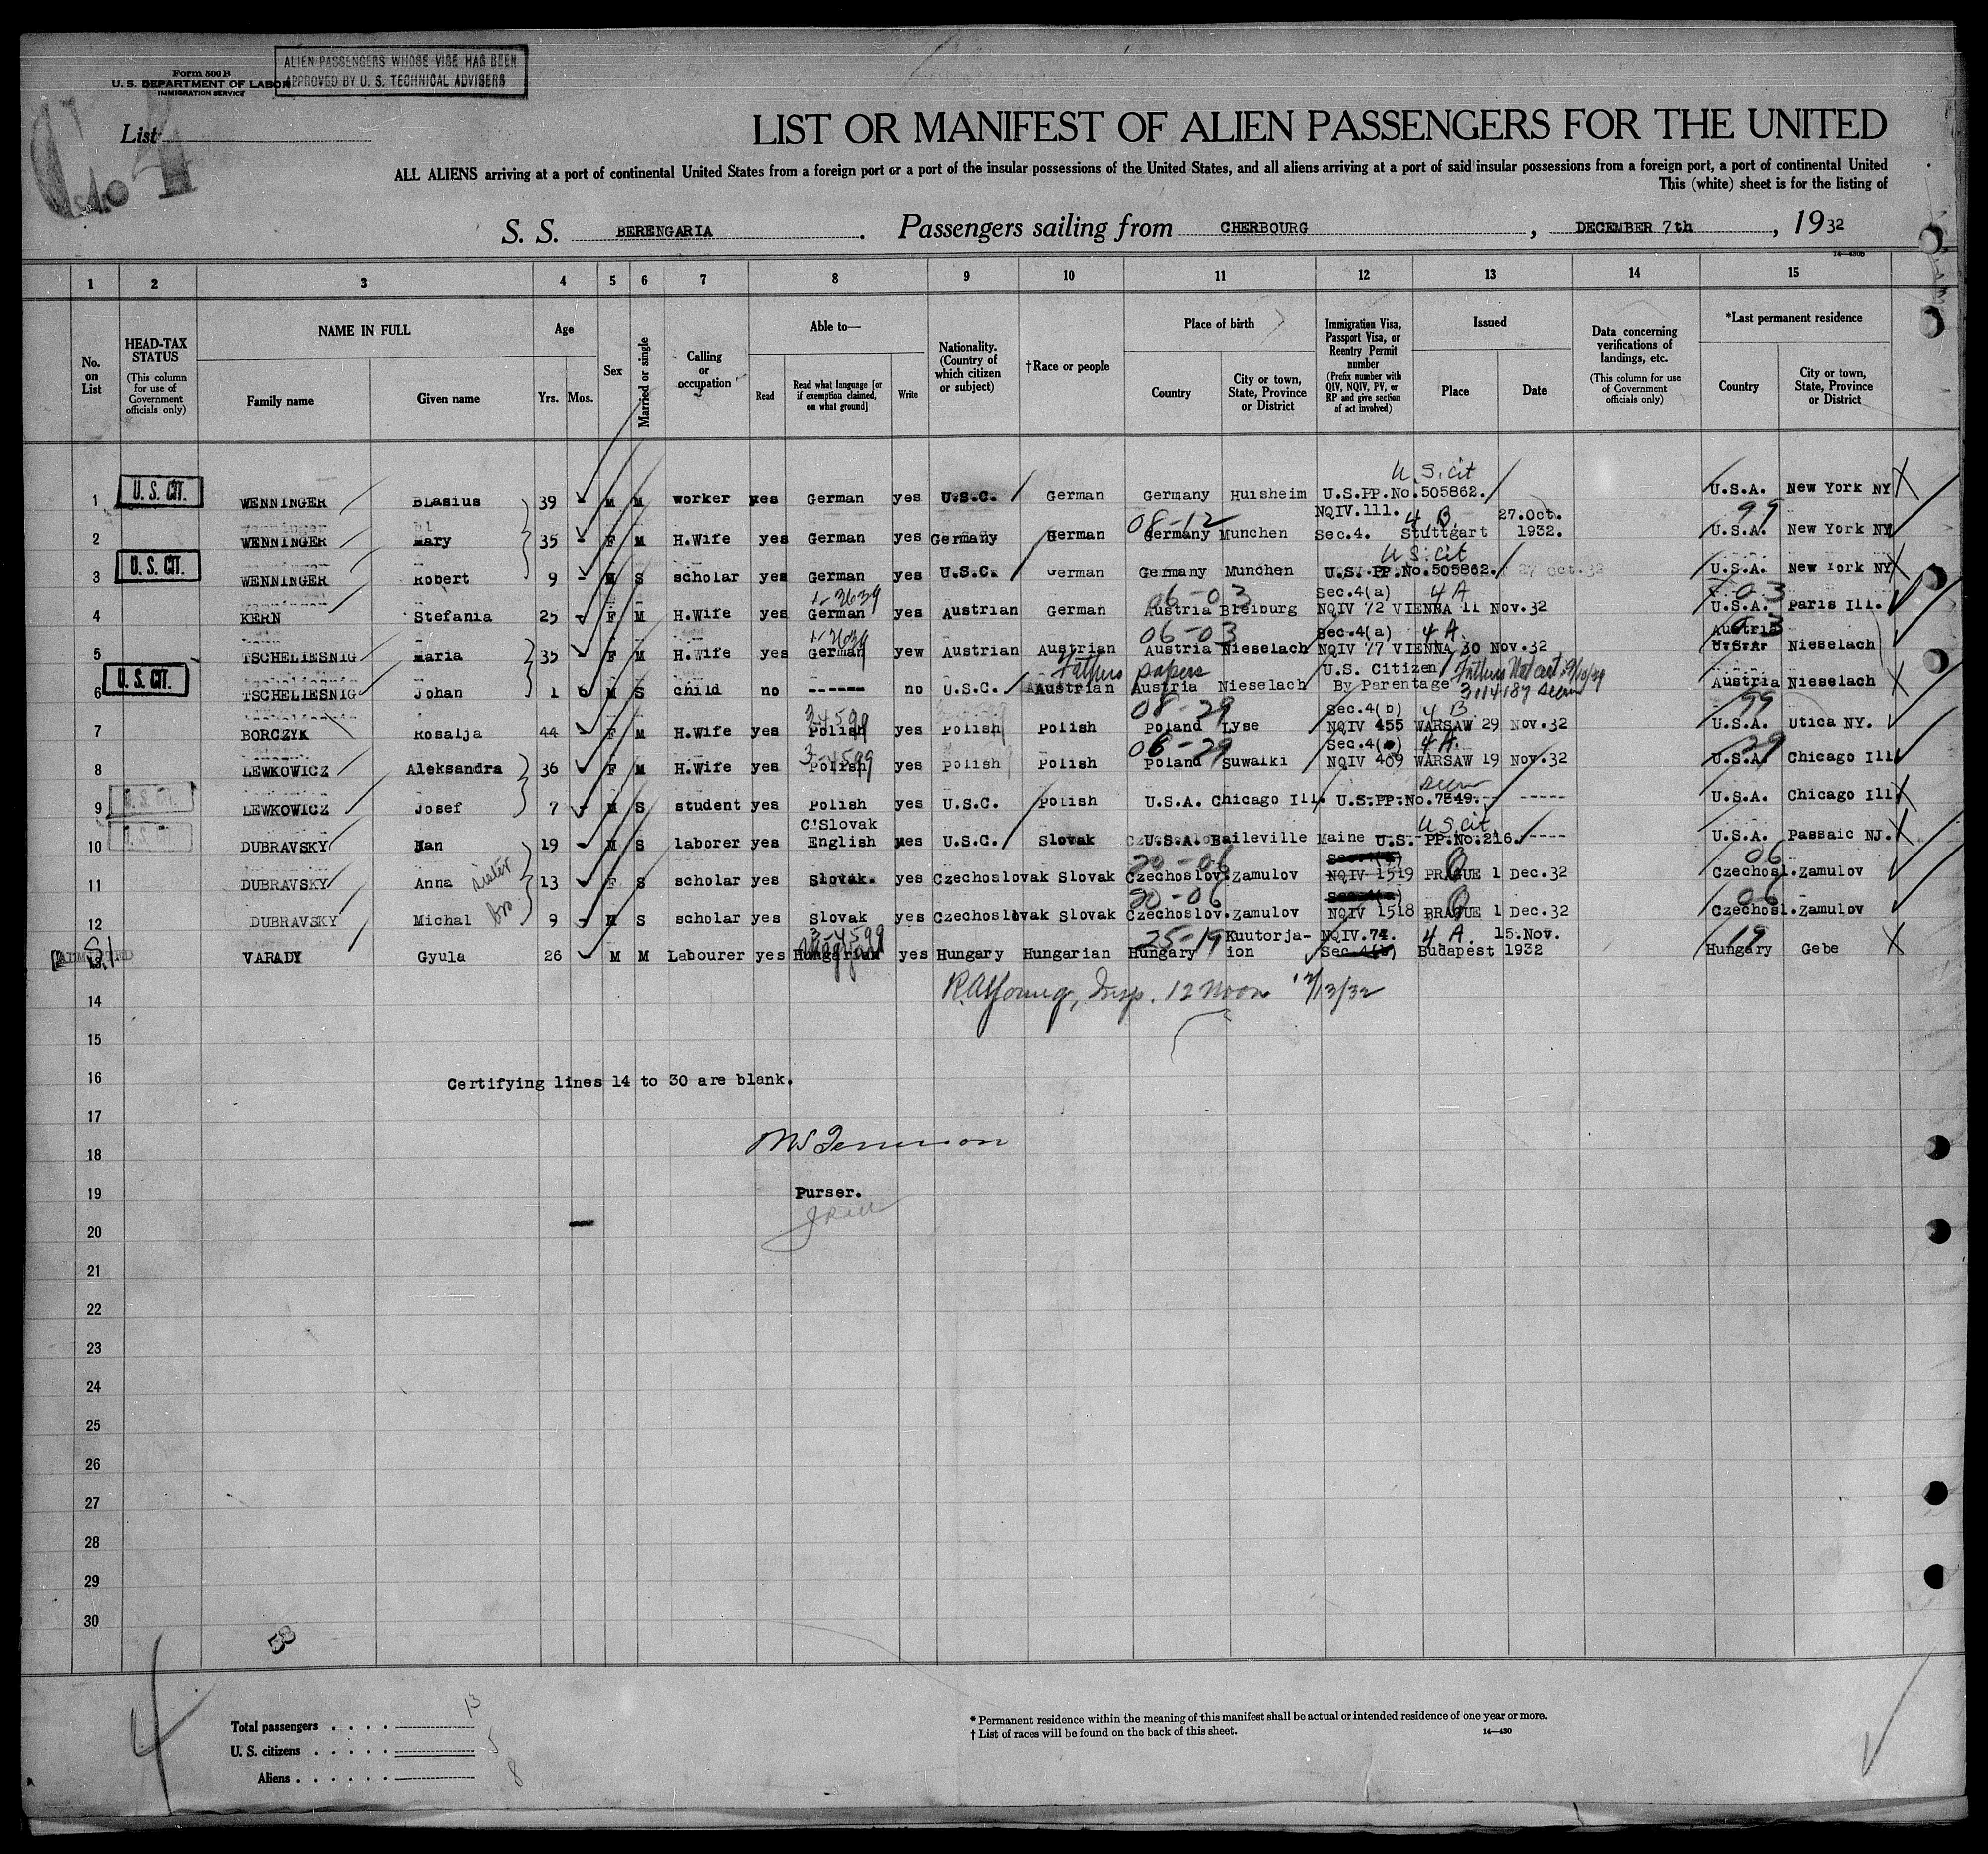 ALIEN PASSENGERS WHOSE VISE HAS BEEN
APPROVED BY U. S. TECHNICAL ADVISERS
Form 500 B
U. S. DEPARTMENT OF LABOR
IMMIGRATION SERVICE
List 4
LIST OR MANIFEST OF ALIEN PASSENGERS FOR THE UNITED
ALL ALIENS arriving at a port of continental United States from a foreign port or a port of the insular possessions of the United States, and all aliens arriving at a port of said insular possessions from a foreign port, a port of continental United
This (white) sheet is for the listing of
S. S. BERENGARIA. Passengers sailing from CHERBOURG, DECEMBER 7th, 1932
14—430B
1 2 3 4 5 6 7 8 9 10 11 12 13 14 15
No. on List
HEAD-TAX STATUS (This column for use of Government officials only)
NAME IN FULL
Family name Given name
Age
Yrs. Mos.
Sex
Married or single
Calling or occupation
Able to—
Read Read what language [or if exemption claimed, on what ground] Write
Nationality. (Country of which citizen or subject)
† Race or people
Place of birth
Country City or town, State, Province or District
Immigration Visa, Passport Visa, or Reentry Permit number (Prefix number with QIV, NQIV, PV, or RP and give section of act involved)
Issued
Place Date
Data concerning verifications of landings, etc. (This column for use of Government officials only)
*Last permanent residence
Country City or town, State, Province or District
U.S. cit
1 U. S. CIT. WENNINGER Blasius 39 - M M worker yes German yes U.S.C. German Germany Huisheim U.S.PP.No.505862. U.S.A. New York NY
08-12 NQIV.111. 4 B 27.Oct. 99
2 WENNINGER Mary 35 - F M H.Wife yes German yes Germany German Germany Munchen Sec.4. Stuttgart 1932. U.S.A. New York NY
U.S. cit
3 U. S. CIT. WENNINGER Robert 9 - M S scholar yes German yes U.S.C. German Germany Munchen U.S. PP.No.505862. 27 oct.32 U.S.A. New York NY
06-03 Sec.4(a) 4 A 03
4 KERN Stefania 25 F M H.Wife yes German yes Austrian German Austria Bleiburg NQIV 72 VIENNA 11 Nov.32 U.S.A. Paris Ill.
06-03 Sec.4(a) 4 A Austria
5 TSCHELIESNIG Maria 35 F M H.Wife yes German yew Austrian Austrian Austria Nieselach NQIV 77 VIENNA 30 Nov.32 U.S.A. Nieselach
Fathers papers U.S. Citizen
6 U. S. CIT. TSCHELIESNIG Johan 1 6 M S child no ------ no U.S.C. Austrian Austria Nieselach By Parentage 3114187 seen Austria Nieselach
3-4599 08-29 Sec.4(b) 4 B 99
7 BORCZYK Rosalja 44 F M H.Wife yes Polish yes Polish Polish Poland Lyse NQIV 455 WARSAW 29 Nov.32 U.S.A. Utica NY.
3-4599 06-29 Sec.4(a) 4 A. 29
8 LEWKOWICZ Aleksandra 36 F M H.Wife yes Polish yes Polish Polish Poland Suwalki NQIV 409 WARSAW 19 Nov.32 U.S.A. Chicago Ill
seen
9 U. S. CIT. LEWKOWICZ Josef 7 M S student yes Polish yes U.S.C. Polish U.S.A. Chicago Ill. U.S.PP.No.7549. ----- U.S.A. Chicago Ill.
C'Slovak U.S. cit
10 U. S. CIT. DUBRAVSKY Jan 19 - M S laborer yes English yes U.S.C. Slovak U.S.A. Baileville Maine U.S. PP.No.216. ----- U.S.A. Passaic NJ.
sister 20-06 Sec.4(a) Q 06
11 DUBRAVSKY Anna 13 F S scholar yes Slovak. yes Czechoslovak Slovak Czechoslov. Zamulov NQIV 1519 PRAGUE 1 Dec.32 Czechosl. Zamulov
bro 20-06 Sec.4(a) Q 06
12 DUBRAVSKY Michal 9 - M S scholar yes Slovak yes Czechoslovak Slovak Czechoslov. Zamulov NQIV 1518 PRAGUE 1 Dec.32 Czechosl. Zamulov
3-4599 25-19 Kuutorja- NQIV.74. 4 A. 15.Nov. 19
13. VARADY Gyula 26 M M Labourer yes Hungarian yes Hungary Hungarian Hungary ion Sec.4(b) Budapest 1932 Hungary Gebe
14 R.A. Young, Insp. 12 Noon 12/13/32
15
16 Certifying lines 14 to 30 are blank.
17
18
19 Purser.
20
21
22
23
24
25
26
27
28
29
30
4
Total passengers 13
U. S. citizens 5
Aliens 8
* Permanent residence within the meaning of this manifest shall be actual or intended residence of one year or more.
† List of races will be found on the back of this sheet.
14—430